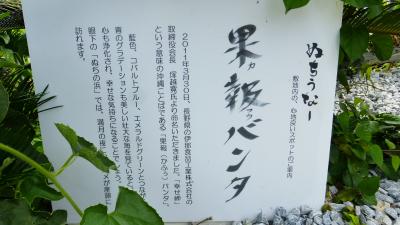 ぬちうなー
敷地内の、心地良いスポットのご案内
果報バンタ
カフウ
2011年3月30日、長野県の伊那食品工業株式会社の
取締役会長 塚越寛氏より命名いただきました。「幸せ岬」
という意味の沖縄ことばである「果報(かふう)バンタ」。
藍色、コバルトブルー、エメラルドグリーンと
青のグラデーションも美しい壮大な海を見ていると
心も浄化され、幸せな気持ちになることでしょう。
眼下の「ぬちの浜」では、満月の夜に
訪れます。